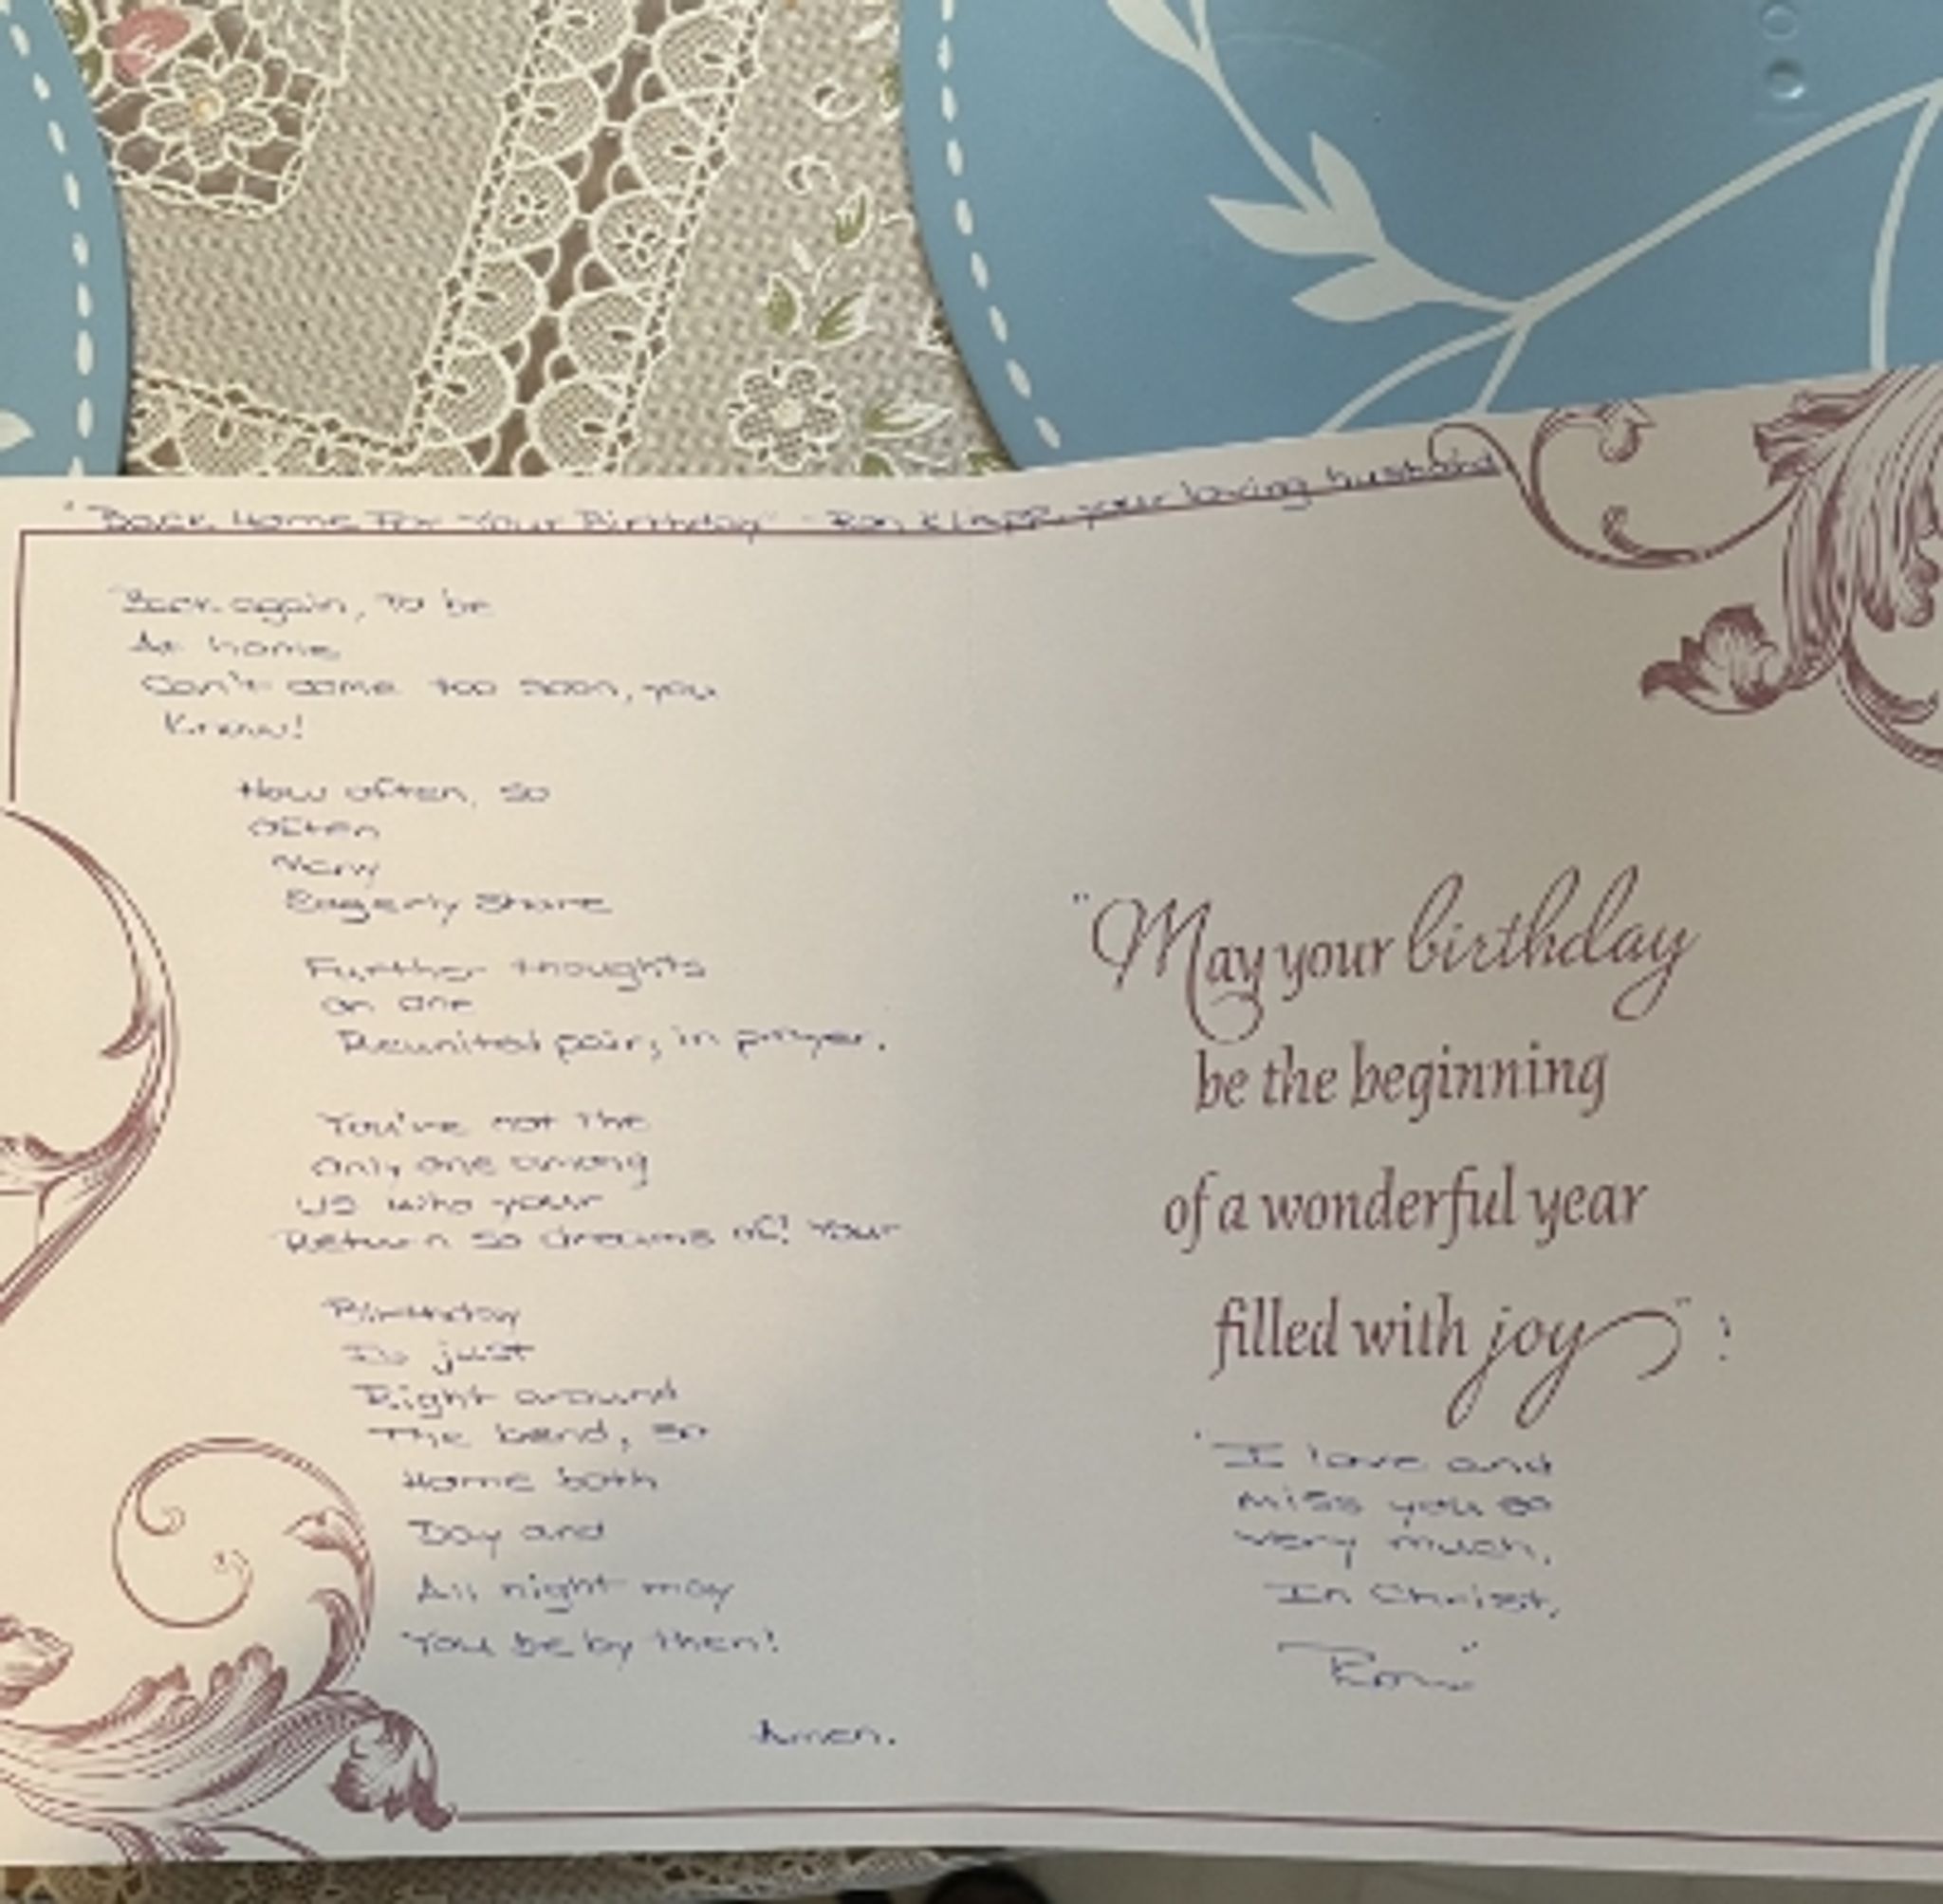 "Back Home For Your Birthday" - Ron Klapp, your loving husband
Back again, to be
At home
Can't come too soon, you
Know!
How often, so
Often
Many
Eagerly Share
Further thoughts
On one
Reunited pair, in prayer.
You're not the
Only one among
Us who your
Return so dreams of! Your
Birthday
Is just
Right around
The bend, so
Home both
Day and
All night may
You be by then!
Amen.
"May your birthday
be the beginning
of a wonderful year
filled with joy"!
"I love and
miss you so
very much,
In Christ,
Ron"